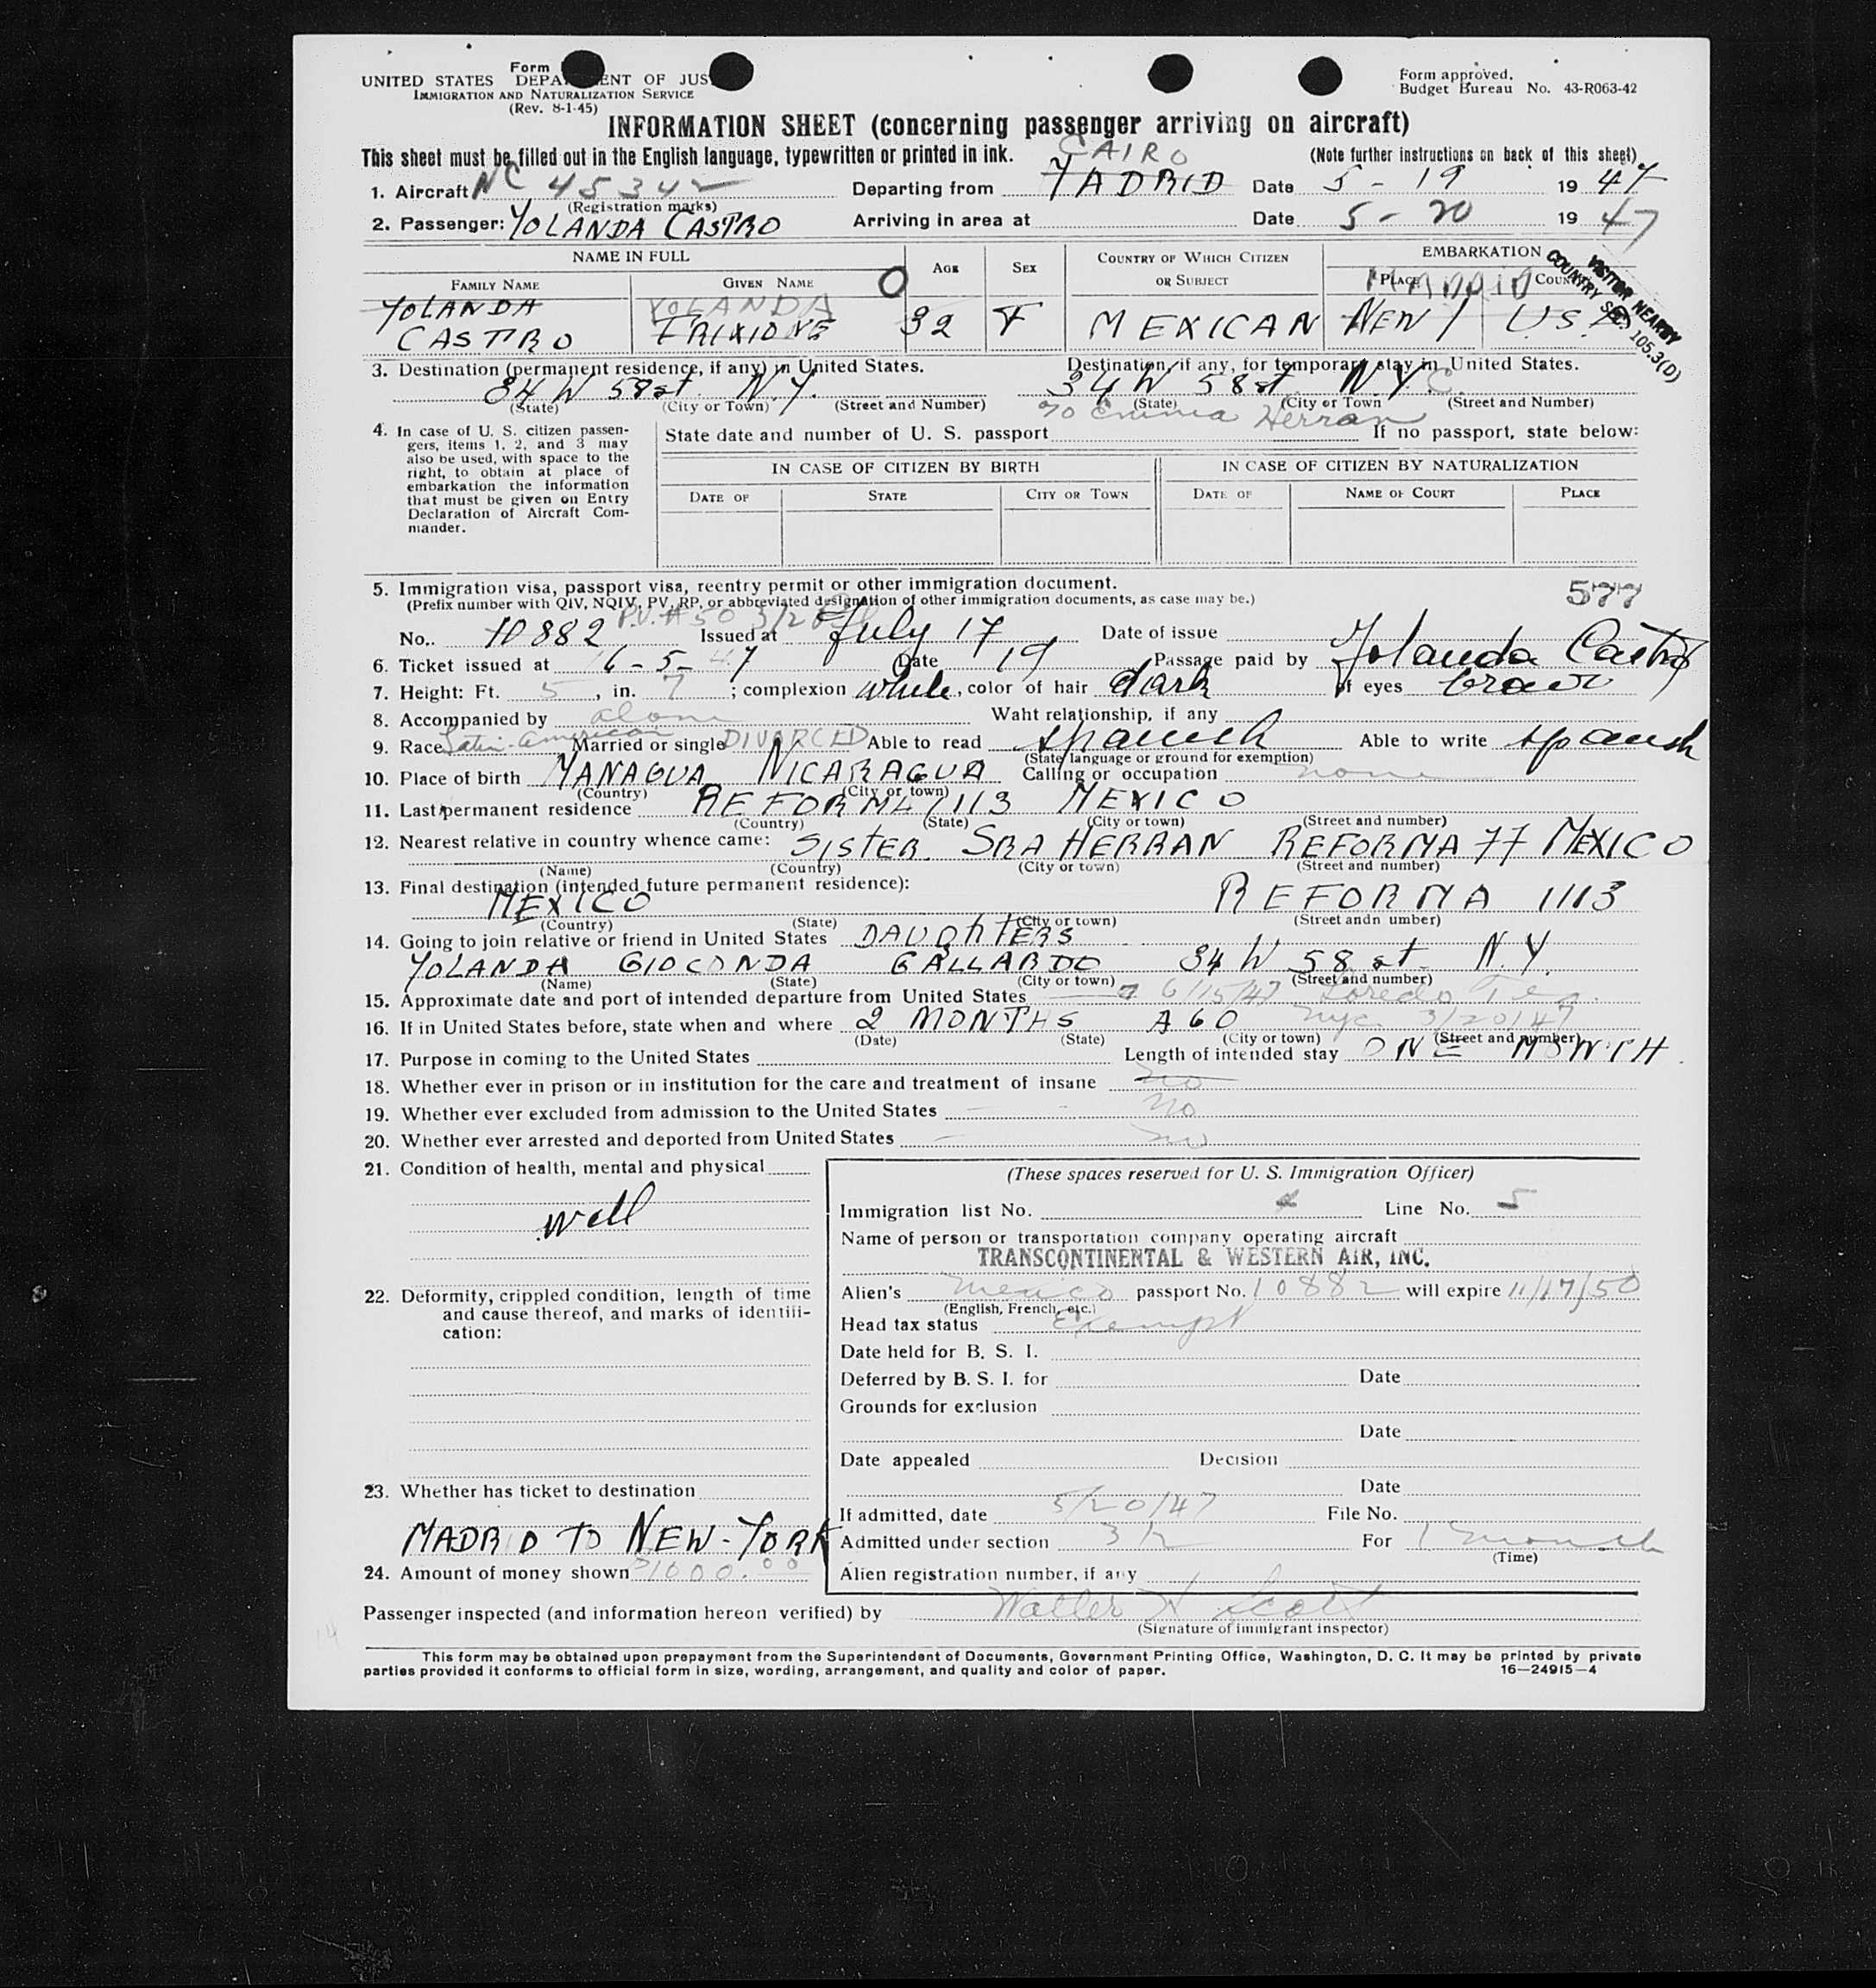 Form
UNITED STATES DEPA ENT OF JUS
IMMIGRATION AND NATURALIZATION SERVICE
(Rev. 8-1-45)
Form approved.
Budget Bureau No. 43-R063-42
INFORMATION SHEET (concerning passenger arriving on aircraft)
This sheet must be filled out in the English language, typewritten or printed in ink. (Note further instructions on back of this sheet)
CAIRO
1. Aircraft NC 45342 Departing from MADRID Date 5-19 1947
(Registration marks)
2. Passenger: YOLANDA CASTRO Arriving in area at Date 5-20 1947
NAME IN FULL AGE SEX COUNTRY OF WHICH CITIZEN OR SUBJECT EMBARKATION
FAMILY NAME GIVEN NAME PLACE COUNTRY
VISITOR NEARBY
COUNTRY SEC. 105.3(D)
YOLANDA YOLANDA MADRID
CASTRO 32 F MEXICAN NEW USA
3. Destination (permanent residence, if any) in United States. Destination, if any, for temporary stay in United States.
34 W 58 st N.Y. 34 W 58 st N.Y.C.
(State) (City or Town) (Street and Number) (State) (City or Town (Street and Number)
c/o Emma Herran
4. In case of U. S. citizen passen-
gers, items 1, 2, and 3 may
also be used, with space to the
right, to obtain at place of
embarkation the information
that must be given on Entry
Declaration of Aircraft Com-
mander.
State date and number of U. S. passport If no passport, state below:
IN CASE OF CITIZEN BY BIRTH IN CASE OF CITIZEN BY NATURALIZATION
DATE OF STATE CITY OR TOWN DATE OF NAME OF COURT PLACE
5. Immigration visa, passport visa, reentry permit or other immigration document.
577
(Prefix number with QIV, NQIV, PV, RP, or abbreviated designation of other immigration documents, as case may be.)
P.V. #50
No. 10882 Issued at July 17 Date of issue
6. Ticket issued at 16-5-47 Date 19 Passage paid by Yolanda Castro
7. Height: Ft. 5, in. 7; complexion white, color of hair dark of eyes brown
8. Accompanied by alone Waht relationship, if any
9. Race Latin-American Married or single DIVORCED Able to read spanish Able to write spanish
(State language or ground for exemption)
10. Place of birth MANAGUA NICARAGUA Calling or occupation none
(Country) (City or town)
11. Last permanent residence REFORMA 1113 MEXICO
(Country) (State) (City or town) (Street and number)
12. Nearest relative in country whence came: SISTER. SRA HERRAN REFORMA 77 MEXICO
(Name) (Country) (City or town) (Street and number)
13. Final destination (intended future permanent residence):
MEXICO REFORMA 1113
(Country) (State) (City or town) (Street andn umber)
14. Going to join relative or friend in United States DAUGHTERS
YOLANDA GIOCONDA GALLARDO 34 W 58 st. N.Y.
(Name) (State) (City or town) (Street and number)
15. Approximate date and port of intended departure from United States 6/15/47 Loredo Tex.
16. If in United States before, state when and where 2 MONTHS AGO nyc. 3/20/47
(Date) (State) (City or town) (Street and number)
17. Purpose in coming to the United States Length of intended stay ONE MONTH
18. Whether ever in prison or in institution for the care and treatment of insane no
19. Whether ever excluded from admission to the United States no
20. Whether ever arrested and deported from United States no
21. Condition of health, mental and physical
well
22. Deformity, crippled condition, length of time
and cause thereof, and marks of identifi-
cation:
23. Whether has ticket to destination
MADRID TO NEW-YORK
24. Amount of money shown $1000.00
(These spaces reserved for U. S. Immigration Officer)
Immigration list No. Line No. 5
Name of person or transportation company operating aircraft
TRANSCONTINENTAL & WESTERN AIR, INC.
Alien's Mexico passport No. 10882 will expire 11/17/50
(English, French, etc.)
Head tax status Exempt
Date held for B. S. I.
Deferred by B. S. I. for Date
Grounds for exclusion
Date
Date appealed Decision
Date
If admitted, date 5/20/47 File No.
Admitted under section 3/2 For 1 month
(Time)
Alien registration number, if any
Passenger inspected (and information hereon verified) by Walter H Scott
(Signature of immigrant inspector)
This form may be obtained upon prepayment from the Superintendent of Documents, Government Printing Office, Washington, D. C. It may be printed by private
parties provided it conforms to official form in size, wording, arrangement, and quality and color of paper. 16—24915-4